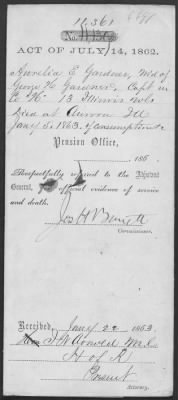 11,361
ACT OF JULY 14, 1862.
Aurelia E. Gardner, Wid of
George H Gardner, Capt in
Co "H" 13 Illinois Vols
Died at Aurora Ill
Jany 5. 1863. of consumption
Pension Office,
186
Respectfully referred to the Adjutant
General, for official evidence of service
and death.
Jos H Barrett
Commissioner.
Received, Jany 22 1863
Hon I N Arnold
H of R
Present
Attorney.